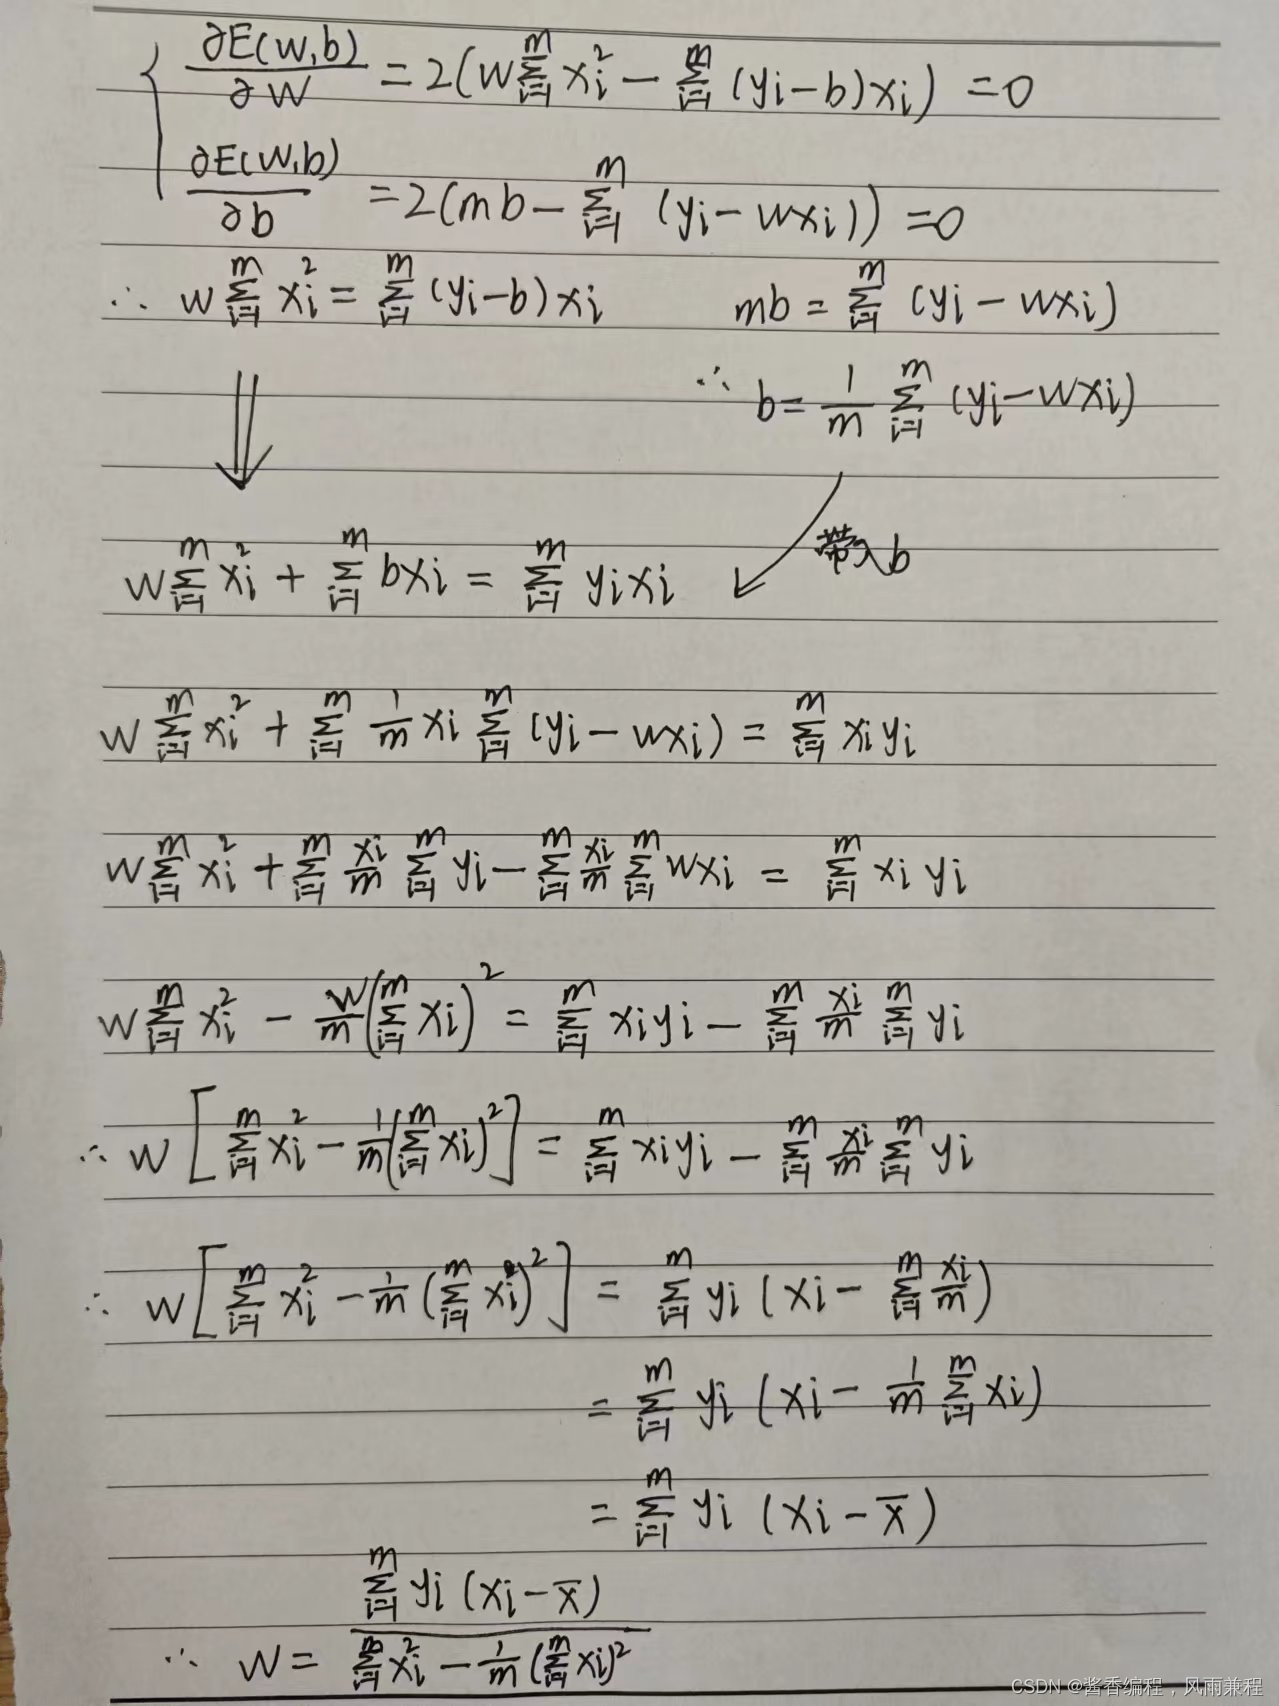 ∂E(w,b)/∂w = 2(w∑_{i=1}^{m} x_i^2 − ∑_{i=1}^{m} (y_i−b)x_i) = 0
∂E(w,b)/∂b = 2(mb − ∑_{i=1}^{m} (y_i − wx_i)) = 0
∴ w∑_{i=1}^{m} x_i^2 = ∑_{i=1}^{m} (y_i−b)x_i mb = ∑_{i=1}^{m} (y_i − wx_i)
∴ b = 1/m ∑_{i=1}^{m} (y_i−wx_i)
⇓
带入b
w∑_{i=1}^{m} x_i^2 + ∑_{i=1}^{m} bx_i = ∑_{i=1}^{m} y_i x_i
w∑_{i=1}^{m} x_i^2 + ∑_{i=1}^{m} 1/m x_i ∑_{i=1}^{m} (y_i − wx_i) = ∑_{i=1}^{m} x_i y_i
w∑_{i=1}^{m} x_i^2 + ∑_{i=1}^{m} x_i/m ∑_{i=1}^{m} y_i − ∑_{i=1}^{m} x_i/m ∑_{i=1}^{m} wx_i = ∑_{i=1}^{m} x_i y_i
w∑_{i=1}^{m} x_i^2 − w/m (∑_{i=1}^{m} x_i)^2 = ∑_{i=1}^{m} x_i y_i − ∑_{i=1}^{m} x_i/m ∑_{i=1}^{m} y_i
∴ w[∑_{i=1}^{m} x_i^2 − 1/m (∑_{i=1}^{m} x_i)^2] = ∑_{i=1}^{m} x_i y_i − ∑_{i=1}^{m} x_i/m ∑_{i=1}^{m} y_i
∴ w[∑_{i=1}^{m} x_i^2 − 1/m (∑_{i=1}^{m} x_i)^2] = ∑_{i=1}^{m} y_i (x_i − ∑_{i=1}^{m} x_i/m)
= ∑_{i=1}^{m} y_i (x_i − 1/m ∑_{i=1}^{m} x_i)
= ∑_{i=1}^{m} y_i (x_i − x̄)
∴ w = ∑_{i=1}^{m} y_i (x_i − x̄) / (∑_{i=1}^{m} x_i^2 − 1/m (∑_{i=1}^{m} x_i)^2)
CSDN @酱香编程，风雨兼程